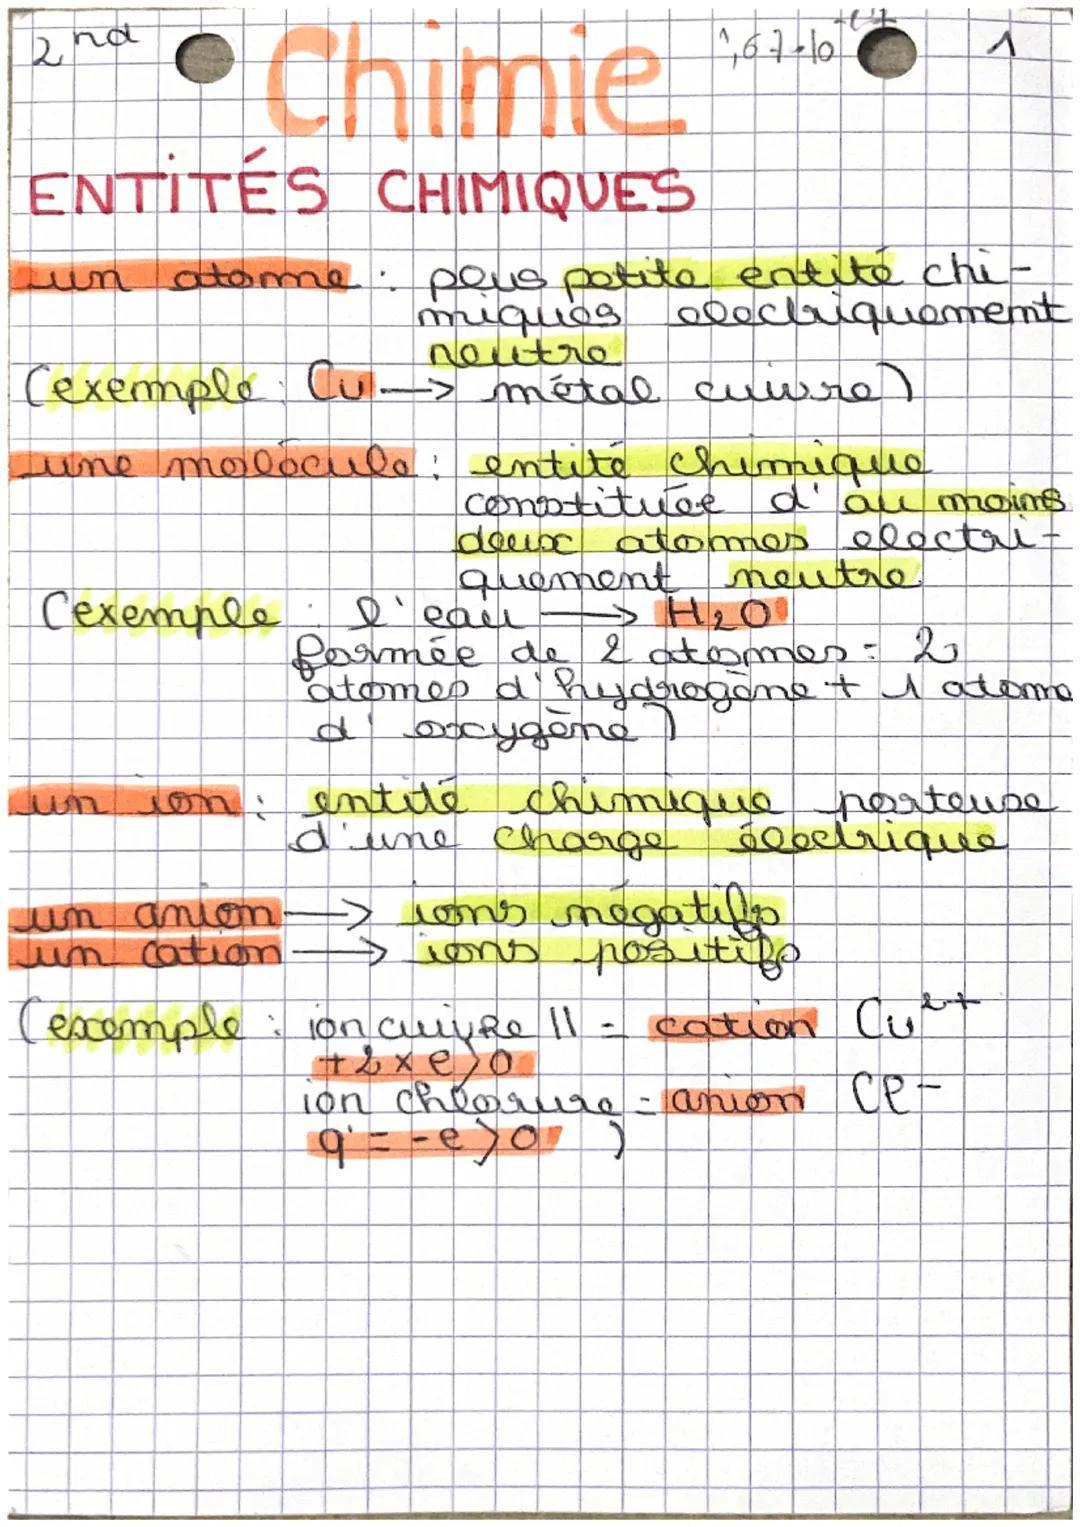 2nd Chimie 1,67.10 1
ENTITÉS CHIMIQUES
un atome : plus petite entité chi-
miques electriquement
neutre
(exemple : Cu → métal cuivre)
une molécule : entité chimique
constituée d' au moins
deux atomes electri-
quement neutre.
(exemple : l'eau → H2O
formée de 2 atomes = 2
atomes d'hydrogène + 1 atome
d' oxygène)
un ion : entité chimique porteuse
d'une charge électrique
un anion → ions négatifs
un cation → ions positifs
(exemple : ion cuivre II = cation Cu²⁺
+2 x e > 0
ion chlorure = anion Cl⁻
q = -e > 0 )